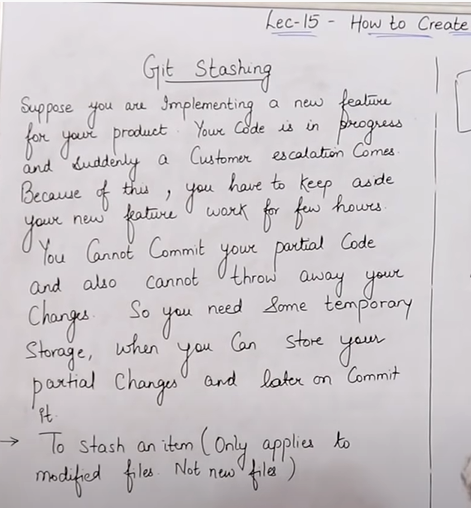 Lec-15 - How to Create
Git Stashing
Suppose you are Implementing a new feature
for your product. Your Code is in progress
and suddenly a Customer escalation Comes.
Because of this, you have to keep aside
your new feature work for few hours.
You Cannot Commit your partial Code
and also cannot throw away your
Changes. So you need Some temporary
Storage, when you Can store your
partial Changes and later on Commit
it.
→ To Stash an item (Only applies to
modified files. Not new files)